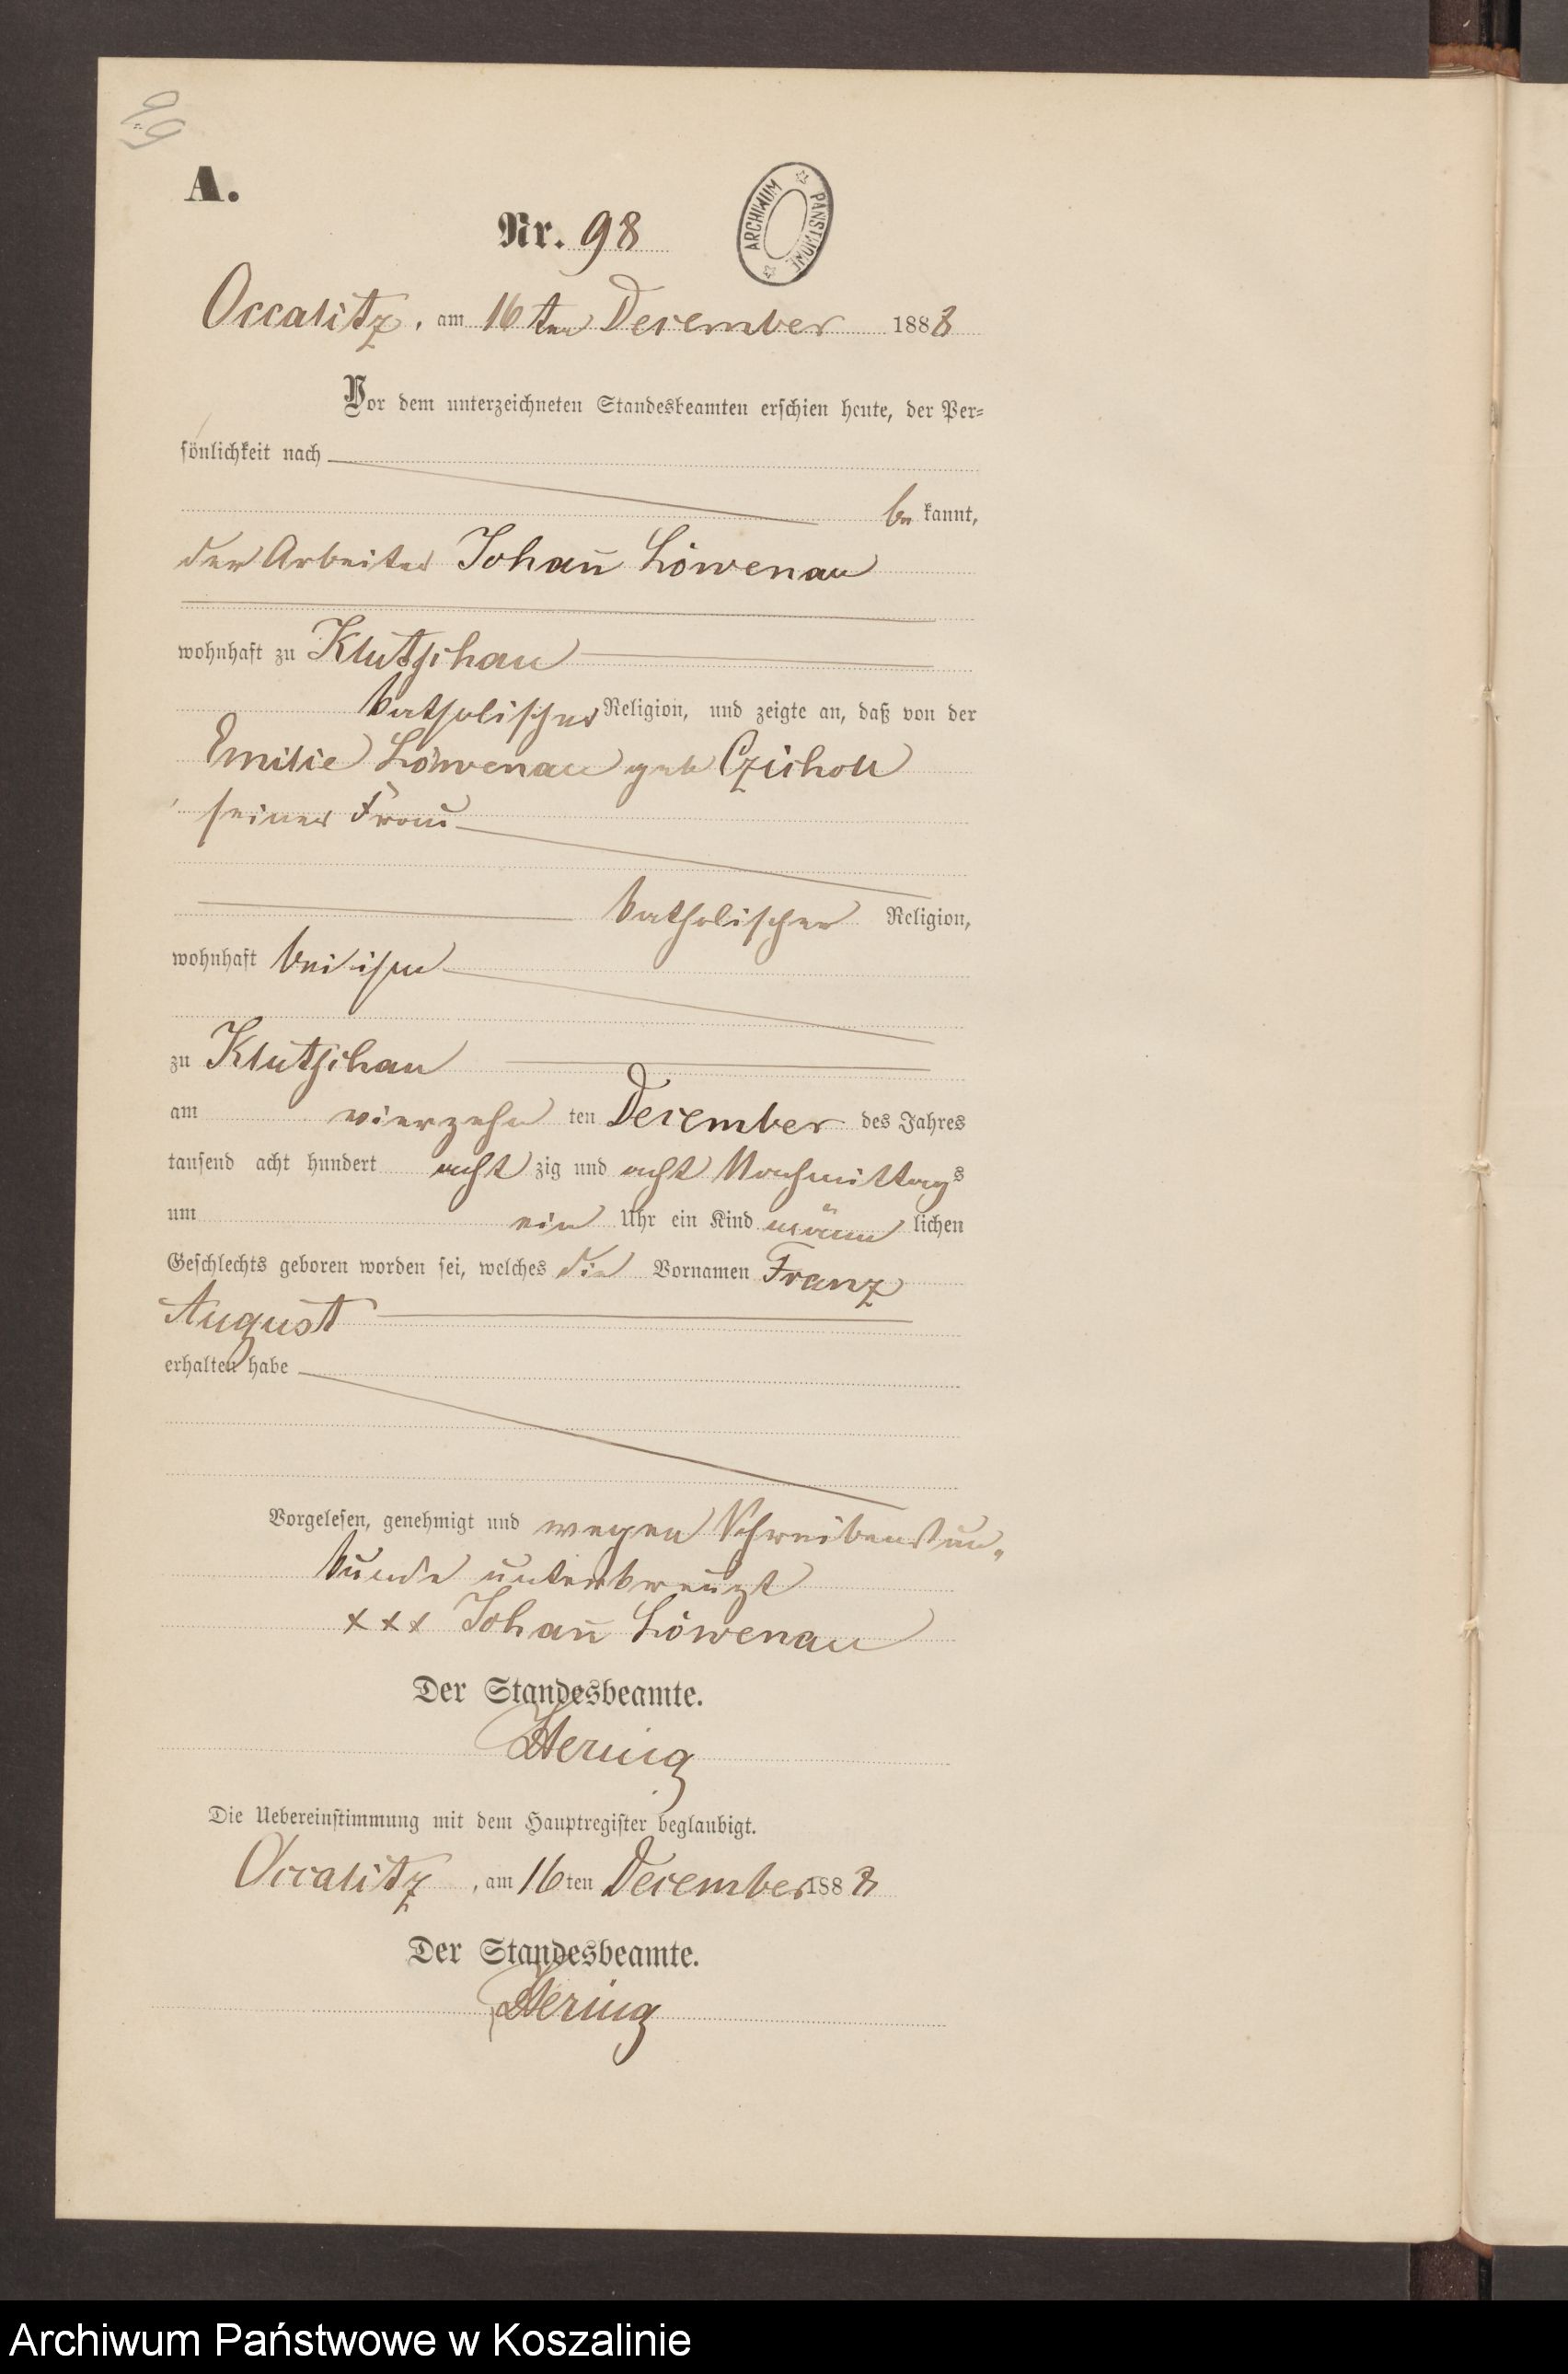 99
A.
Nr. 98
ARCHIWUM PAŃSTWOWE
Occalitz, am 16ten December 1888
Vor dem unterzeichneten Standesbeamten erschien heute, der Per-
sönlichkeit nach
be kannt,
der Arbeiter Johan̄ Löwenau
wohnhaft zu Klutschau
katholischer Religion, und zeigte an, daß von der
Emilie Löwenau geb Czicholl
seiner Frau
katholischer Religion,
wohnhaft bei ihm
zu Klutschau
am vierzehn ten December des Jahres
tausend acht hundert acht zig und acht Nachmittags
um ein Uhr ein Kind männ lichen
Geschlechts geboren worden sei, welches die Vornamen Franz
August
erhalten habe
Vorgelesen, genehmigt und wegen Schreibensun-
kunde unterkreuzt
xxx Johan̄ Löwenau
Der Standesbeamte.
Hering
Die Uebereinstimmung mit dem Hauptregister beglaubigt.
Occalitz, am 16ten December 1888
Der Standesbeamte.
Hering
Archiwum Państwowe w Koszalinie